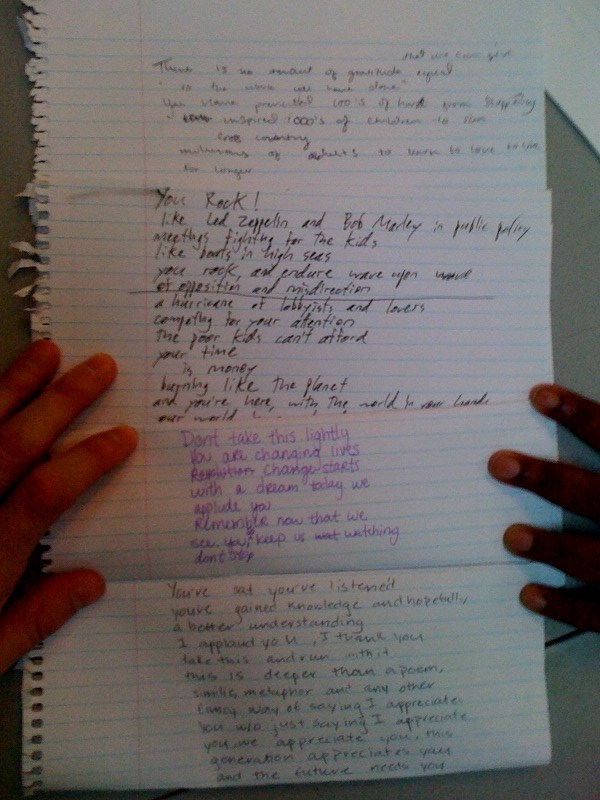 that we can give
There is no amount of gratitude equal
to the work you have done
You have prevented 100's of hard from
inspired 1000's of children to
cross country
of adults to learn to love
for longer
You Rock!
like Led Zeppelin and Bob Marley in public policy
meetings fighting for the kids
like boats in high seas
you rock, and endure wave upon wave
of opposition and misdirection
a hurricane of lobbyists and lovers
competing for your attention
the poor kids can't afford
your time
is money
burning like the planet
and you're here, with the world in your hands
our world
Dont take this lightly
You are changing lives
Revolution change starts
with a dream today we
applude you
Remember now that we
see you, keep us watching
dont stop
You've sat you've listened
youve gained knowledge and hopefully
a better understanding
I applaud you, I thank you
take this and run with it
this is deeper than a poem,
simile, metaphor and any other
fancy way of saying I appreciate
you w/o just saying I appreciate
you, we appreciate you, this
generation appreciates you
and the future needs you